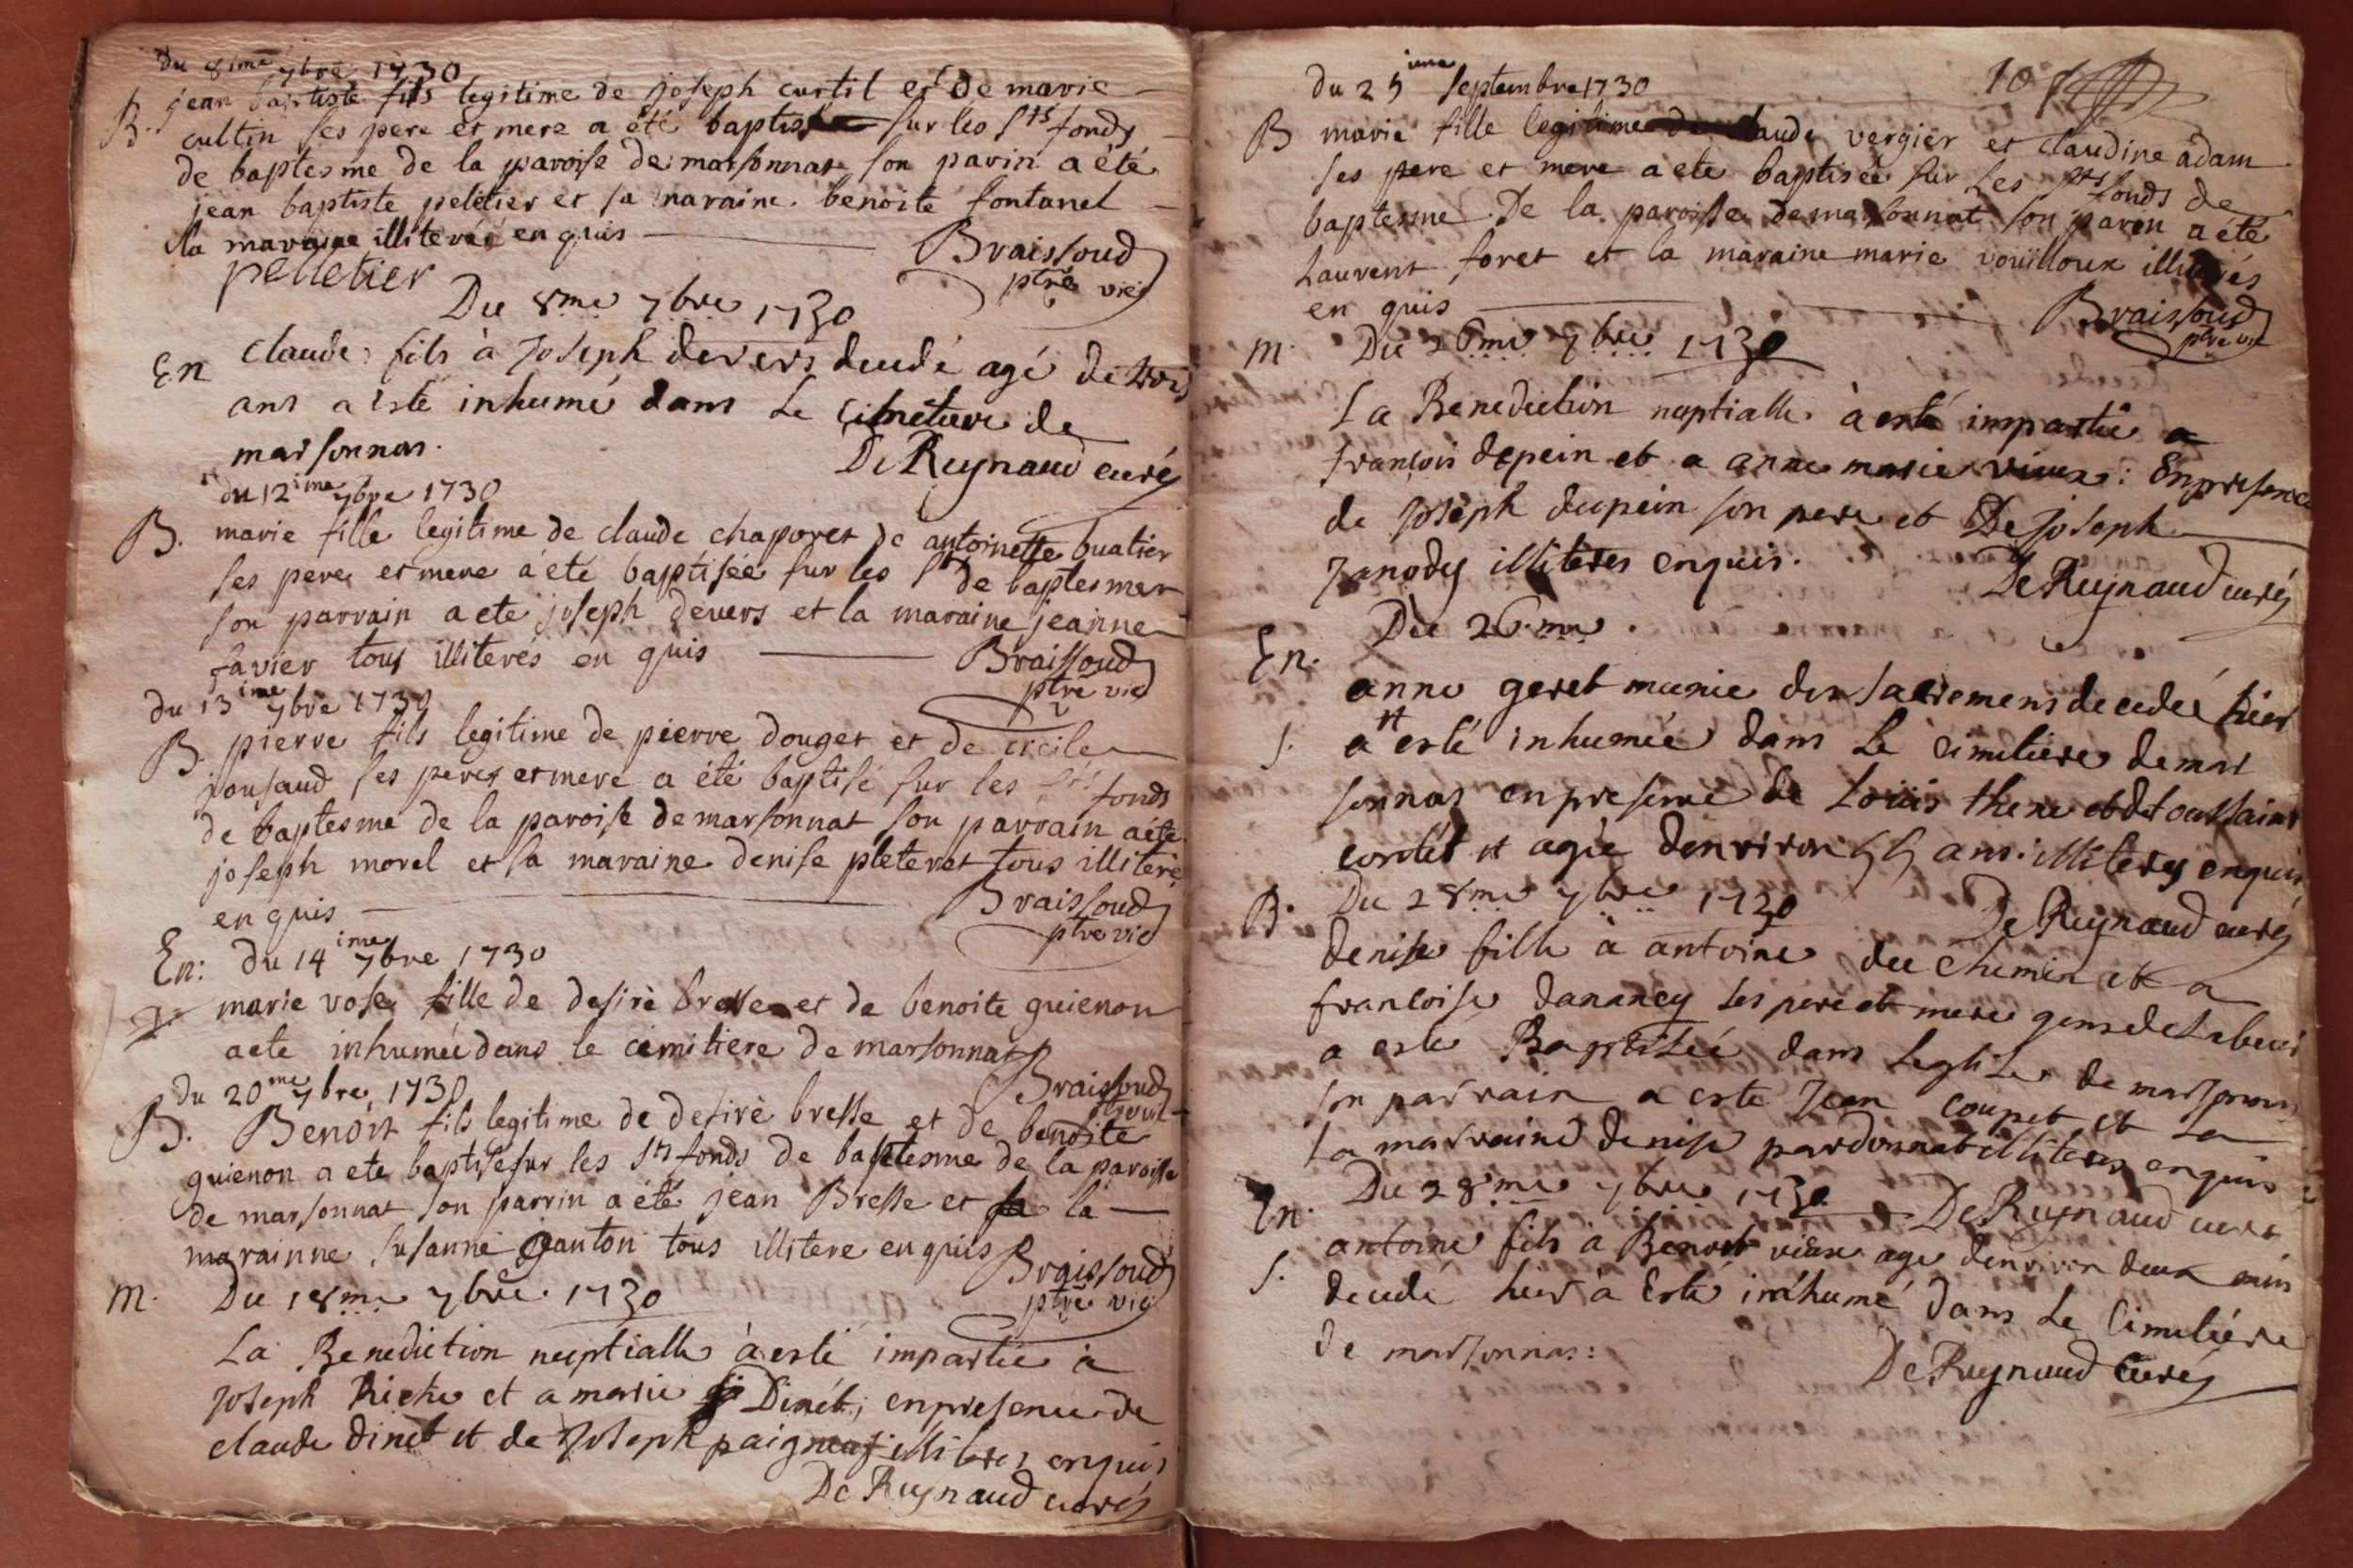 du 8ime 7bre 1730
B. jean baptiste fils legitime de joseph curtil et de marie
cultin ses pere et mere a été baptisé sur les sts fonds
de baptesme de la paroisse de marsonnat son parin a été
jean baptiste peletier et sa maraine benoite fontanel
la maraine illiterée enquis Braissoud
pelletier ptre vic
Du 8me 7bre 1730
En claude fils à Joseph devers decedé agé de trois
ans a esté inhumé dans Le cimetiere de
marsonnas.
De Reynaud curé
du 12ime 7bre 1730
B. marie fille legitime de claude chaporet de antoinette buatier
ses pere et mere a été baptisée sur les sts de baptesmes
son parrain a ete joseph devers et la maraine jeanne
favier tous illiterés en quis Braissoud
ptre vic
du 13ime 7bre 1730
B. pierre fils legitime de pierre douget et de cecile
jousaud ses peres et mere a été baptisé sur les sts fonds
de baptesme de la paroisse de marsonnat son parrain a été
joseph morel et sa maraine denise pleteret tous illiteré
en quis Braissoud
ptre vic
En: du 14ime 7bre 1730
marie rose fille de desirè bresse et de benoite guienon
a ete inhumée dans le cimitiere de marsonnat
Braissoud
du 20me 7bre 1730
B. Benoit fils legitime de desirè bresse et de benoite
guienon a ete baptisé sur les sts fonds de baptesme de la paroisse
de marsonnat son parrin a été jean Bresse et la
marainne susanne Janton tous illitere enquis Braissoud
ptre vic
M. Du 18me 7bre 1730
La Benediction nuptialle à esté impartie à
Joseph Riche et a marie Dinet, en presence de
claude dinet et de Joseph illiteres enquis
De Reynaud curé
10
du 25ime septembre 1730
B marie fille legitime de claude vergier et claudine adam
ses pere et mere a ete baptisée sur les sts fonds de
baptesme De la paroisse de marsonnat son parin a été
Laurent foret et la maraine marie vouilloux illiterés
en quis Braissoud
ptre vic
m. Du 26me 7bre 1730
La Benediction nuptialle à esté impartie a
françois depein et a anne marie vieux: En presence
de Joseph dupein son pere et De joseph
Janody illiteres enquis.
De Reynaud curé
Du 26.me.
En. anne geret munie des sacremens decedée hier
S. a esté inhumée dans Le cimetiere de mar
sonnas en presence de Loüis thene et de toussaint
cordet et agée denviron 55 ans. illiteres enquis
De Reynaud curé
B. Du 28me 7bre 1730
denise fille à antoine du chemin et a
francoise dananey ses pere et mere gens de Labeur
a esté Baptisée dans Leglise de marsonnas
son parrain a este Jean coupet et La
La marraine denise pardonnat illiteres enquis
De Reynaud curé
Du 28me 7bre 1730
En. antoine fils à Benoit vieux age denviron deux
S. decedé hier à Esté inhumé dans Le Cimetiére
de marsonnas:
De Reynaud Curé